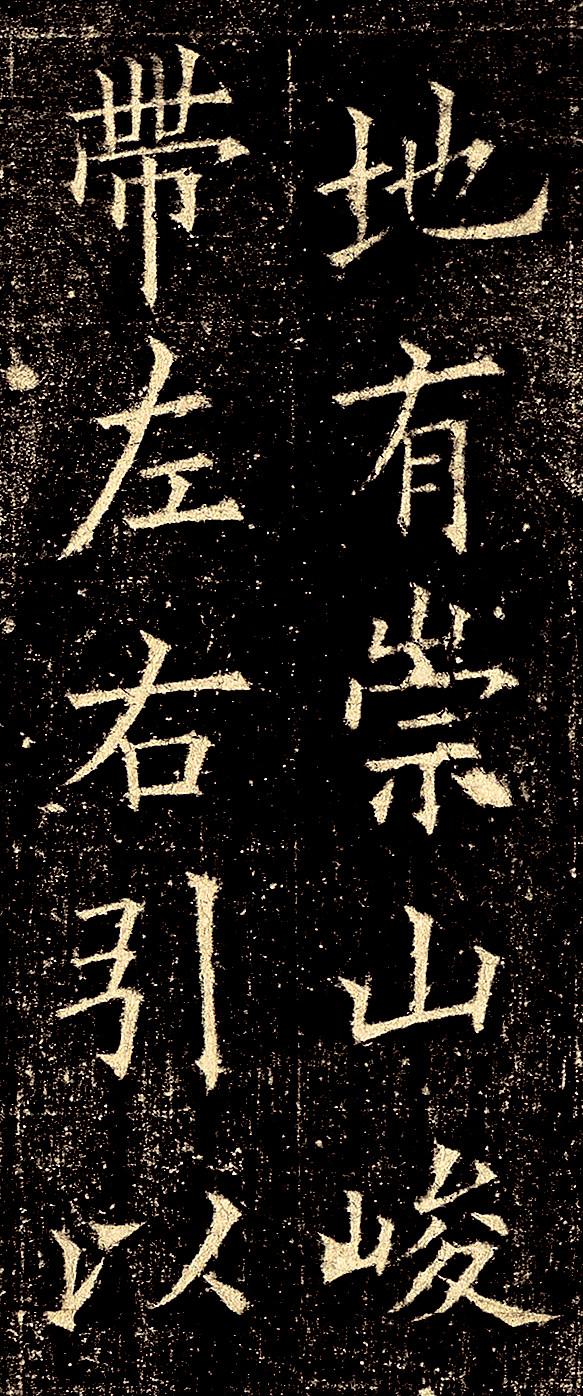 地有崇山峻
帶左右引以